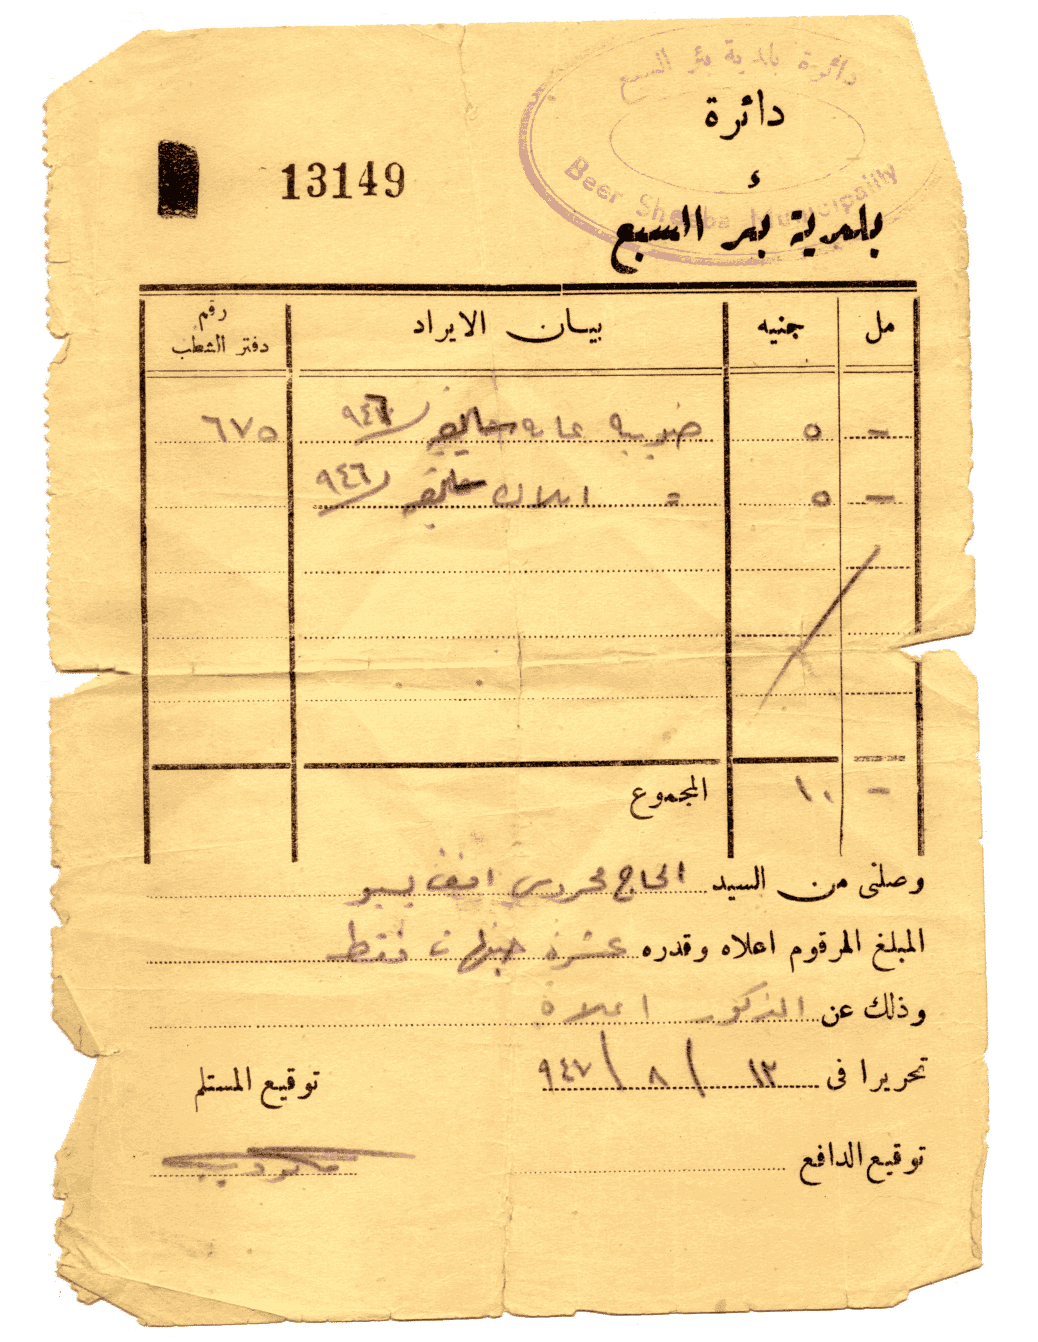 دائرة بلدية بئر السبع
Beer Sheba Municipality
دائرة
بلدية بئر السبع
13149
مل جنيه بيان الايراد رقم دفتر الشطب
- ٥ ضريبة ٩٤٦ ٦٧٥
- ٥ = املاك ٩٤٦
- ١٠ المجموع
وصلنى من السيد الحاج
المبلغ المرقوم اعلاه وقدره عشرة جنيهات فقط
وذلك عن المذكور اعلاه
تحريرا فى ١٢ / ٨ / ٩٤٧
توقيع المستلم
توقيع الدافع